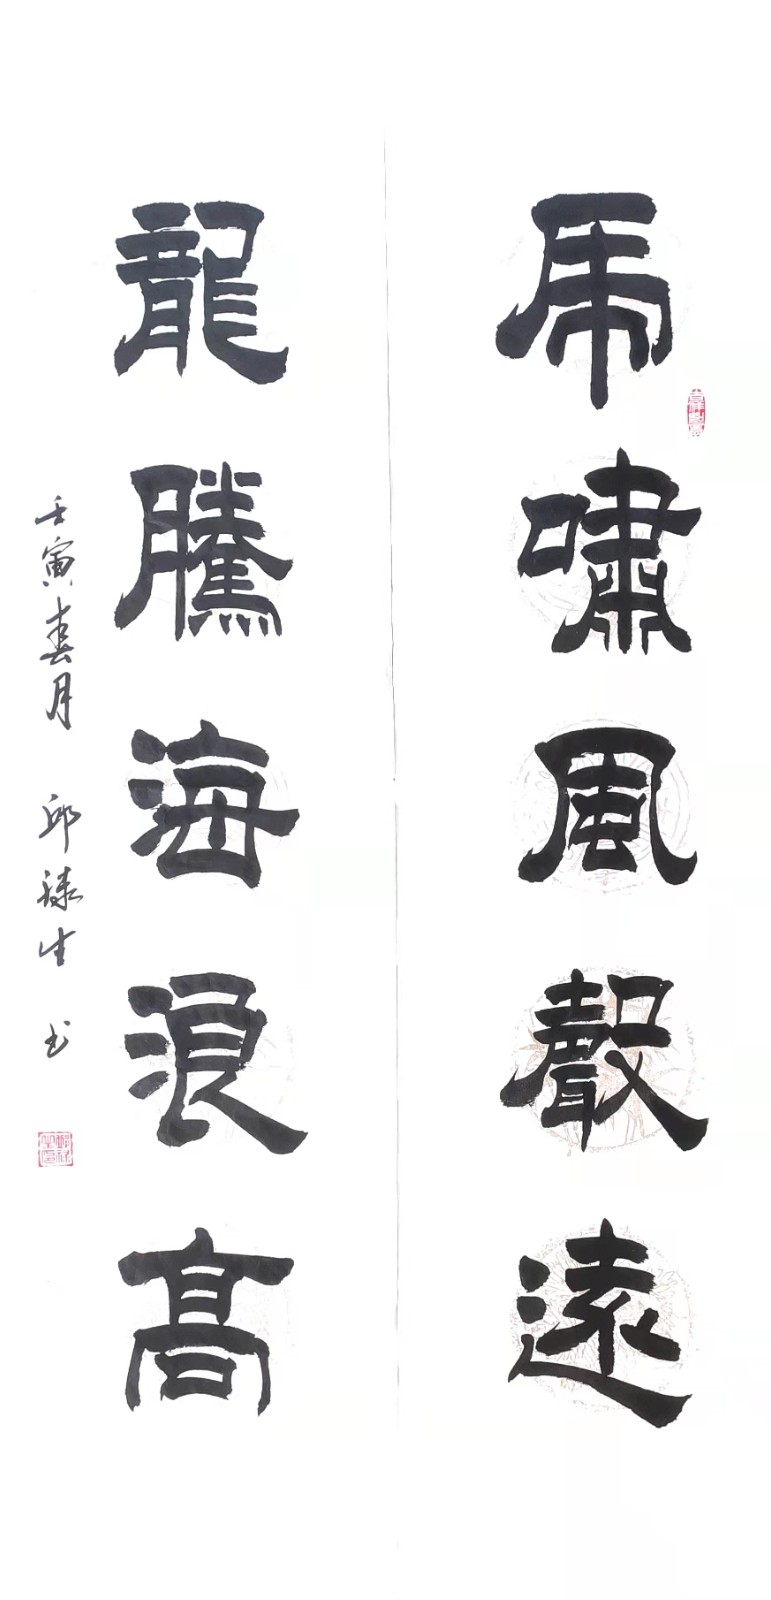 虎嘯風聲遠
龍騰海浪高
壬寅春月 邱 生 书